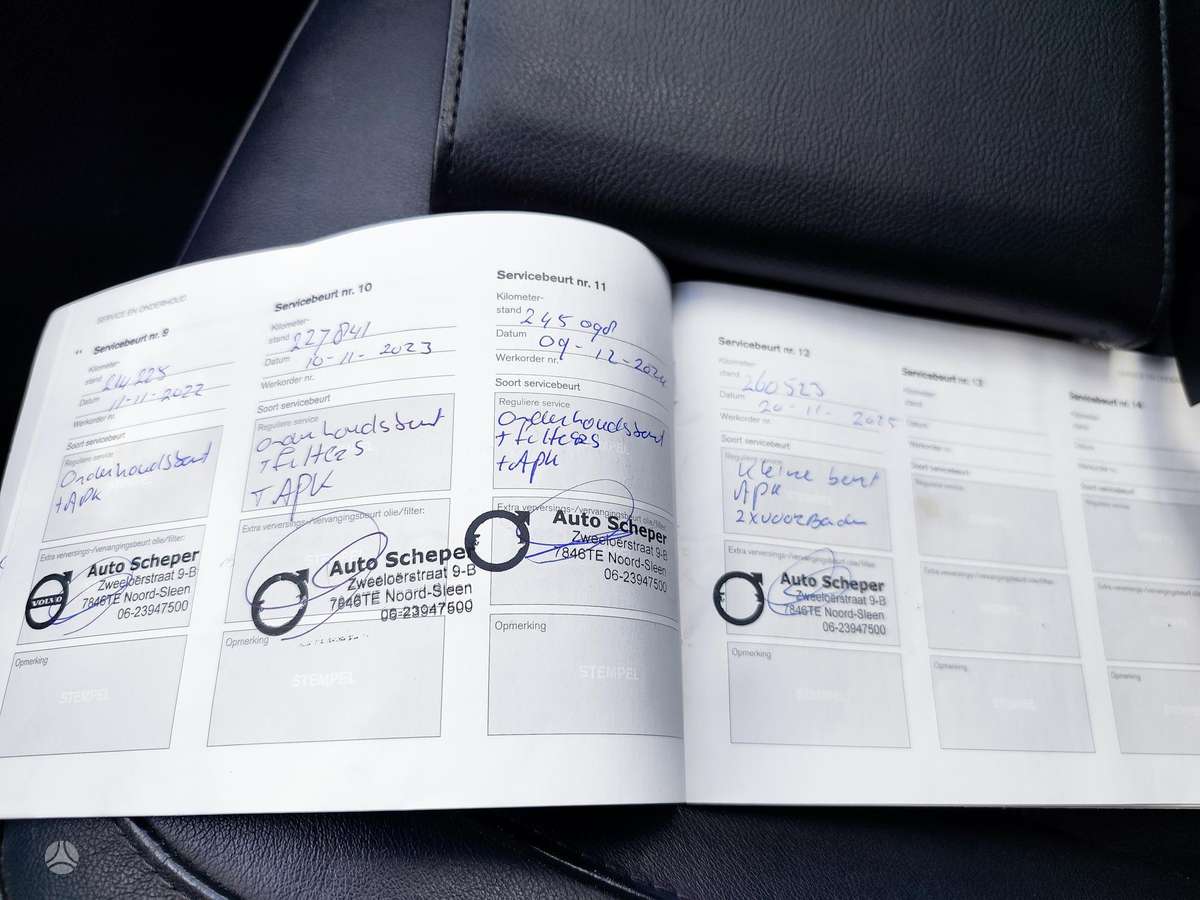 SERVICE EN ONDERHOUD
Servicebeurt nr. 9
Kilometer-
stand 214225
Datum 11-11-2022
Werkorder nr.
Soort servicebeurt
Reguliere service
Onderhoudsbeurt
+ APK
Extra verversings-/vervangingsbeurt olie/filter:
VOLVO
Auto Scheper
Zweeloërstraat 9-B
7846TE Noord-Sleen
06-23947500
Opmerking
STEMPEL
Servicebeurt nr. 10
Kilometer-
stand 227841
Datum 10-11-2023
Werkorder nr.
Soort servicebeurt
Reguliere service
Onderhoudsbeurt
+ filters
+ APK
Extra verversings-/vervangingsbeurt olie/filter:
Auto Scheper
Zweeloërstraat 9-B
7846TE Noord-Sleen
06-23947500
Opmerking
STEMPEL
Servicebeurt nr. 11
Kilometer-
stand 245098
Datum 09-12-2024
Werkorder nr.
Soort servicebeurt
Reguliere service
Onderhoudsbeurt
+ filters
+ APK
Extra verversings-/vervangingsbeurt olie/filter:
Auto Scheper
Zweeloërstraat 9-B
7846TE Noord-Sleen
06-23947500
Opmerking
STEMPEL
Servicebeurt nr. 12
Kilometer-
stand 260523
Datum 20-11-2025
Werkorder nr.
Soort servicebeurt
Reguliere service
Kleine beurt
APK
2x voorbanden
Extra verversings-/vervangingsbeurt olie/filter:
Auto Scheper
Zweeloërstraat 9-B
7846TE Noord-Sleen
06-23947500
Opmerking
Servicebeurt nr. 13
Kilometer-
stand
Datum
Werkorder nr.
Soort servicebeurt
Reguliere service
Extra verversings-/vervangingsbeurt olie/filter:
Opmerking
Servicebeurt nr. 14
Kilometer-
stand
Datum
Werkorder nr.
Soort servicebeurt
Reguliere service
Opmerking